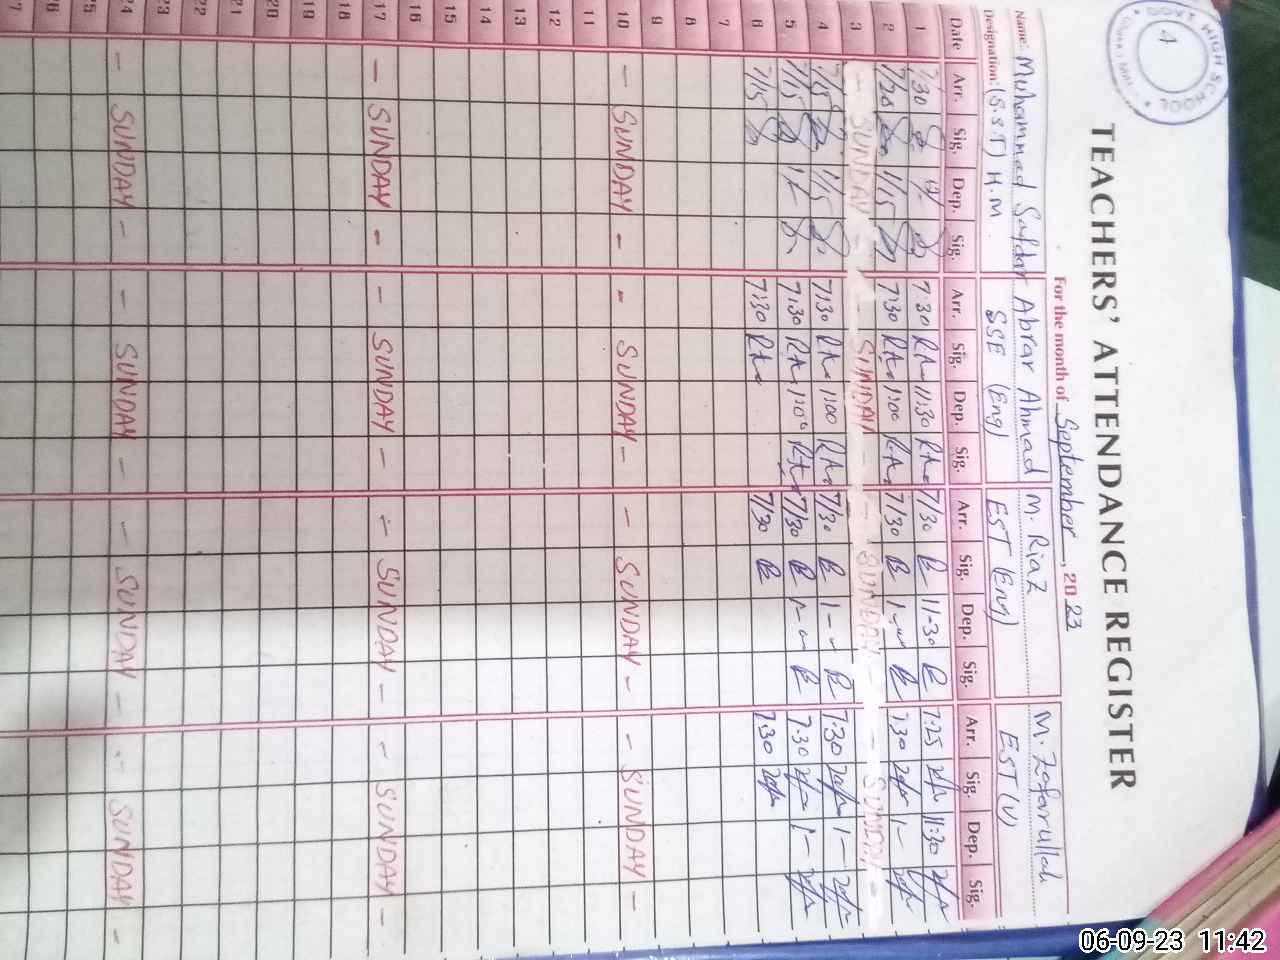 GOVT HIGH SCHOOL
4
TEACHERS' ATTENDANCE REGISTER
For the month of September, 2023
Name: Muhammad Safdar Abrar Ahmad M. Riaz M. Zafarullah
Designation: (S.S.T) H.M SSE (Eng) EST (Eng) EST (V)
Date Arr. Sig. Dep. Sig. Arr. Sig. Dep. Sig. Arr. Sig. Dep. Sig. Arr. Sig. Dep. Sig.
1 7/30 7:30 RA 11:30 RA 7/30 B 11-30 B 7:25 11:30
2 7/20 1/15 7:30 RA 1:00 RA 7/30 B 1- B 7:30 1-
3 - SUNDAY - SUNDAY - SUNDAY - SUNDAY -
4 7/15 1/15 7:30 RA 1:00 RA 7/30 B 1- B 7:30 1-
5 7/15 1- 7:30 RA 1:00 RA 7/30 B 1- B 7:30 1-
6 7/15 7:30 RA 7/30 B 7:30
7
8
9
10 - SUNDAY - - SUNDAY - - SUNDAY - - SUNDAY -
11
12
13
14
15
16
17 - SUNDAY - - SUNDAY - - SUNDAY - - SUNDAY -
18
19
20
21
22
23
24 - SUNDAY - - SUNDAY - - SUNDAY - - SUNDAY -
25
26
27
06-09-23 11:42